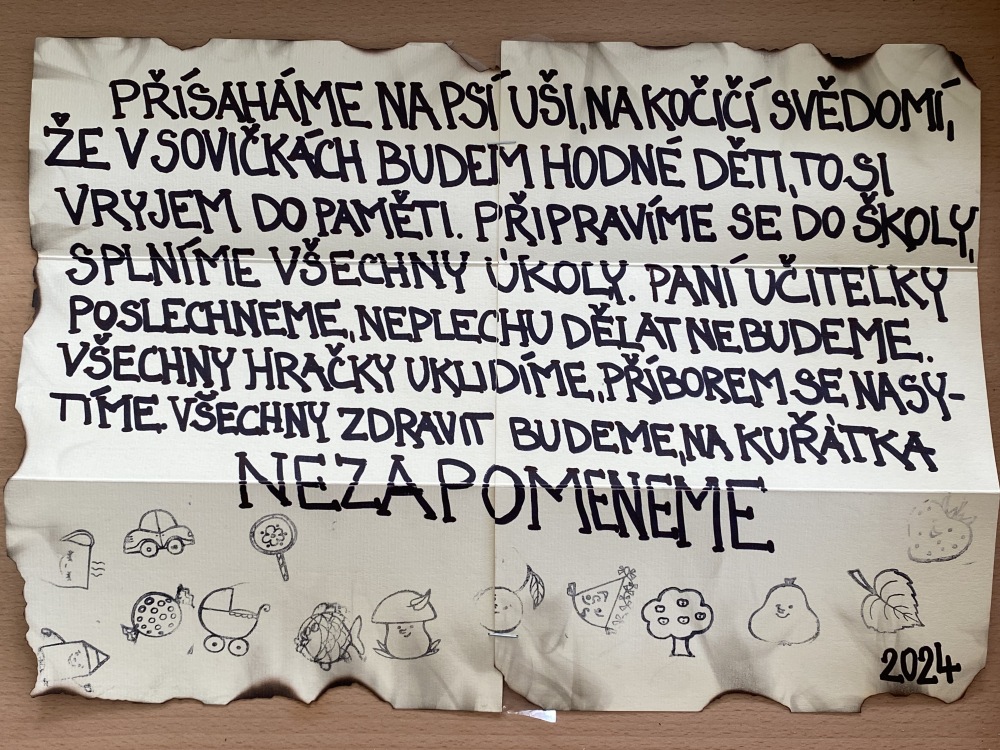 PŘÍSAHÁME NA PSÍ UŠI, NA KOČIČÍ SVĚDOMÍ,
ŽE V SOVIČKÁCH BUDEM HODNÉ DĚTI, TO SI
VRYJEM DO PAMĚTI. PŘIPRAVÍME SE DO ŠKOLY,
SPLNÍME VŠECHNY ÚKOLY. PANÍ UČITELKY
POSLECHNEME, NEPLECHU DĚLAT NEBUDEME.
VŠECHNY HRAČKY UKLIDÍME, PŘÍBOREM SE NASY-
TÍME. VŠECHNY ZDRAVIT BUDEME, NA KUŘÁTKA
NEZAPOMENEME
2024